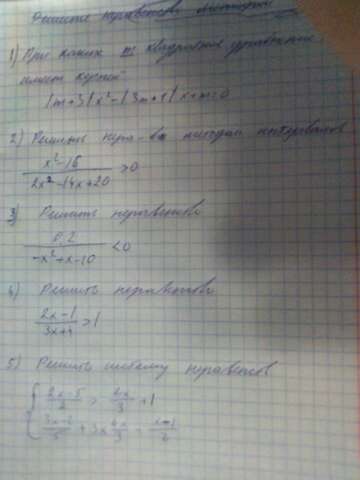 Решить неравенство
1) При каких m квадратное уравнение
имеет корни
(m+3)x²-(3m+1)x+m=0
2) Решить нера-ва методом интервалов
x²-16 / 2x²-14x+20 >0
3) Решить неравенство
0,2 / -x²+x-10 <0
4) Решить неравенство
2x-1 / 3x+4 >1
5) Решить систему неравенств
2x-5 / 2 > 2x / 3 +1